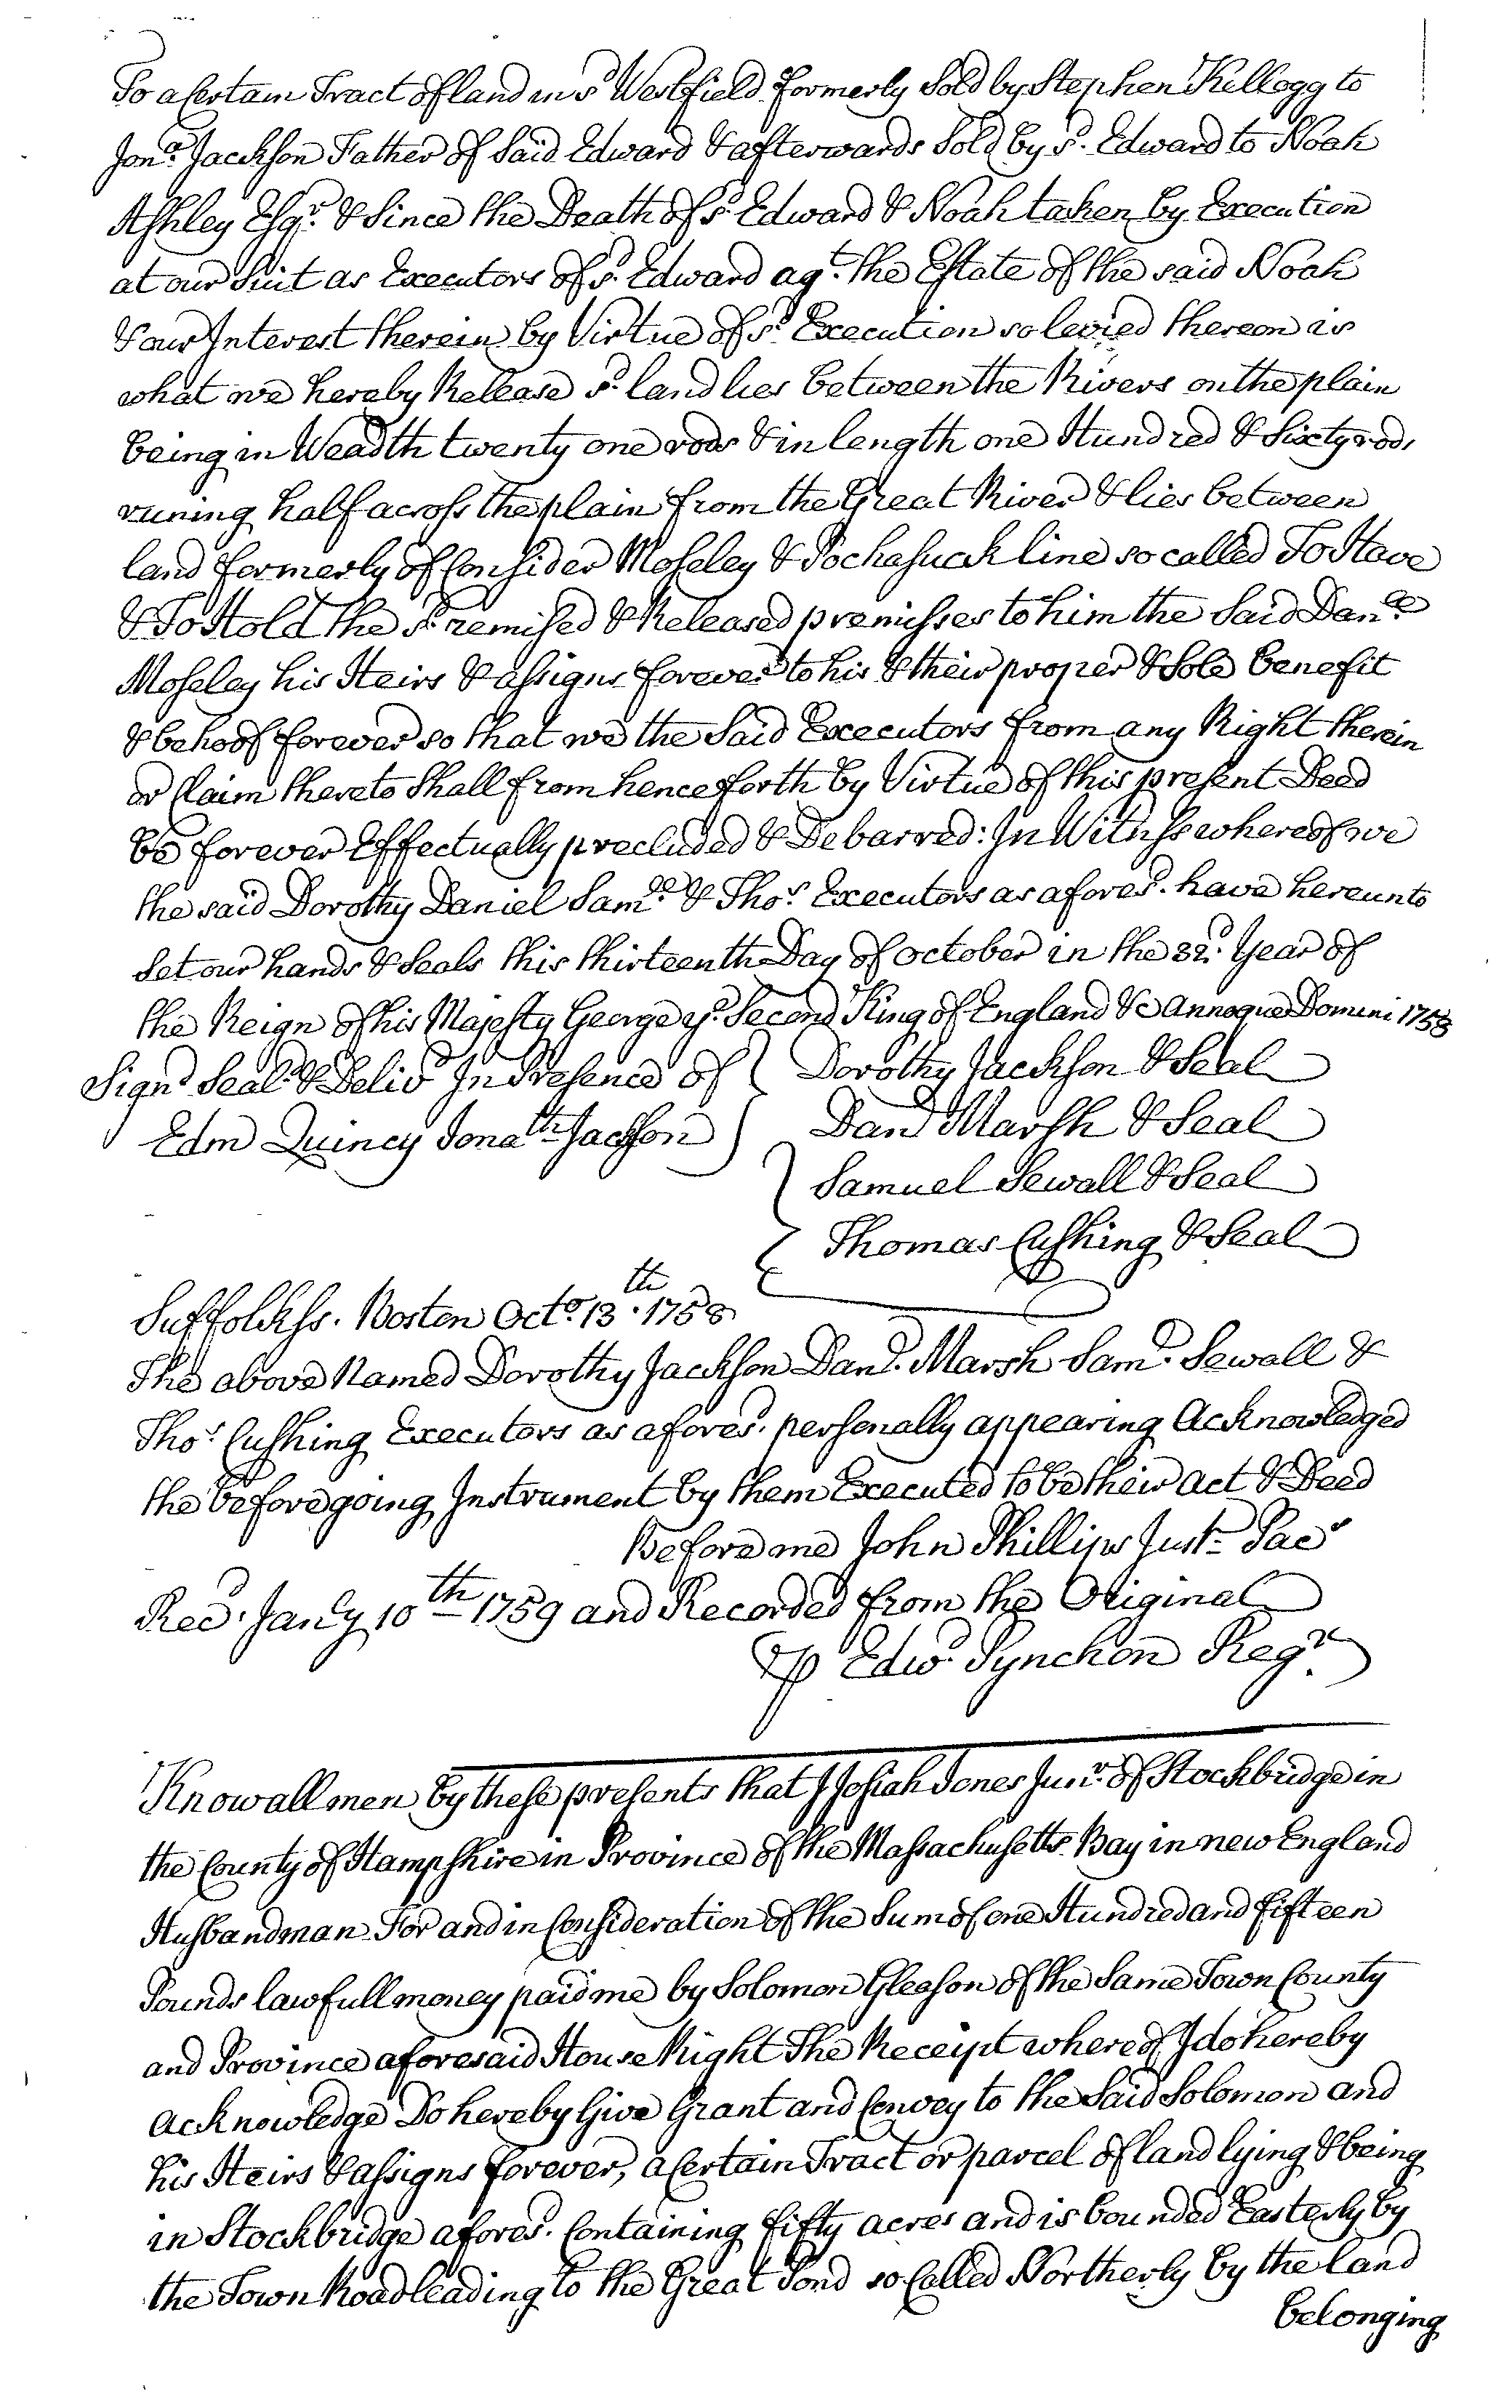 To a Certain Tract of land in sd Westfield formerly Sold by Stephen Kellogg to
Jona. Jackson Father of Said Edward & afterwards Sold by sd. Edward to Noah
Ashley Esqr. & Since the Death of sd. Edward & Noah taken by Execution
at our Suit as Executors of sd. Edward agt. the Estate of the said Noah
& our Interest therein by Virtue of sd. Execution so levied thereon is
what we hereby Release sd. land lies between the Rivers on the plain
being in Weadth twenty one rods & in length one Hundred & Sixty rods
runing half across the plain from the Great River & lies between
land formerly of Consider Moseley & Pochasuck line so called To Have
& To Hold the sd. remised & Released premisses to him the Said Danll.
Moseley his Heirs & assigns forever to his & their proper & Sole benefit
& behoof forever so that we the Said Executors from any Right therein
or Claim thereto Shall from henceforth by Virtue of this present Deed
be forever Effectually precluded & Debarred: In Witness whereof we
the said Dorothy Daniel Samll. & Thos. Executors as aforesd. have hereunto
Set our hands & Seals this thirteenth Day of October in the 32d. Year of
the Reign of his Majesty George ye. Second King of England &c Annoque Domini 1758
Signd Seald. & Delivd In Presence of } Dorothy Jackson & Seal
Edm Quincy Jonath Jackson } Danl Marsh & Seal
Samuel Sewall & Seal
Thomas Cushing & Seal
Suffolk ss. Boston Octo. 13th. 1758
The above Named Dorothy Jackson Danl. Marsh Saml. Sewall &
Thos. Cushing Executors as aforesd. personally appearing Acknowledged
the beforegoing Instrument by them Executed to be their Act & Deed
Before me John Phillips Just. Pacs
Recd. Janry 10th 1759 and Recorded from the Original
℔ Edwd. Pynchon Regr.
Know all men by these presents that I Josiah Jones Junr. of Stockbridge in
the County of Hampshire in Province of the Massachusetts Bay in new England
Husbandman For and in Consideration of the Sum of one Hundred and fifteen
Pounds lawfull money paid me by Solomon Gleason of the Same Town County
and Province aforesaid House Right The Receipt whereof I do hereby
acknowledge Do hereby Give Grant and Convey to the Said Solomon and
his Heirs & assigns forever, a Certain Tract or parcel of land lying & being
in Stockbridge aforesd. Containing fifty acres and is bounded Easterly by
the Town Road leading to the Great Pond so Called Northerly by the land
belonging